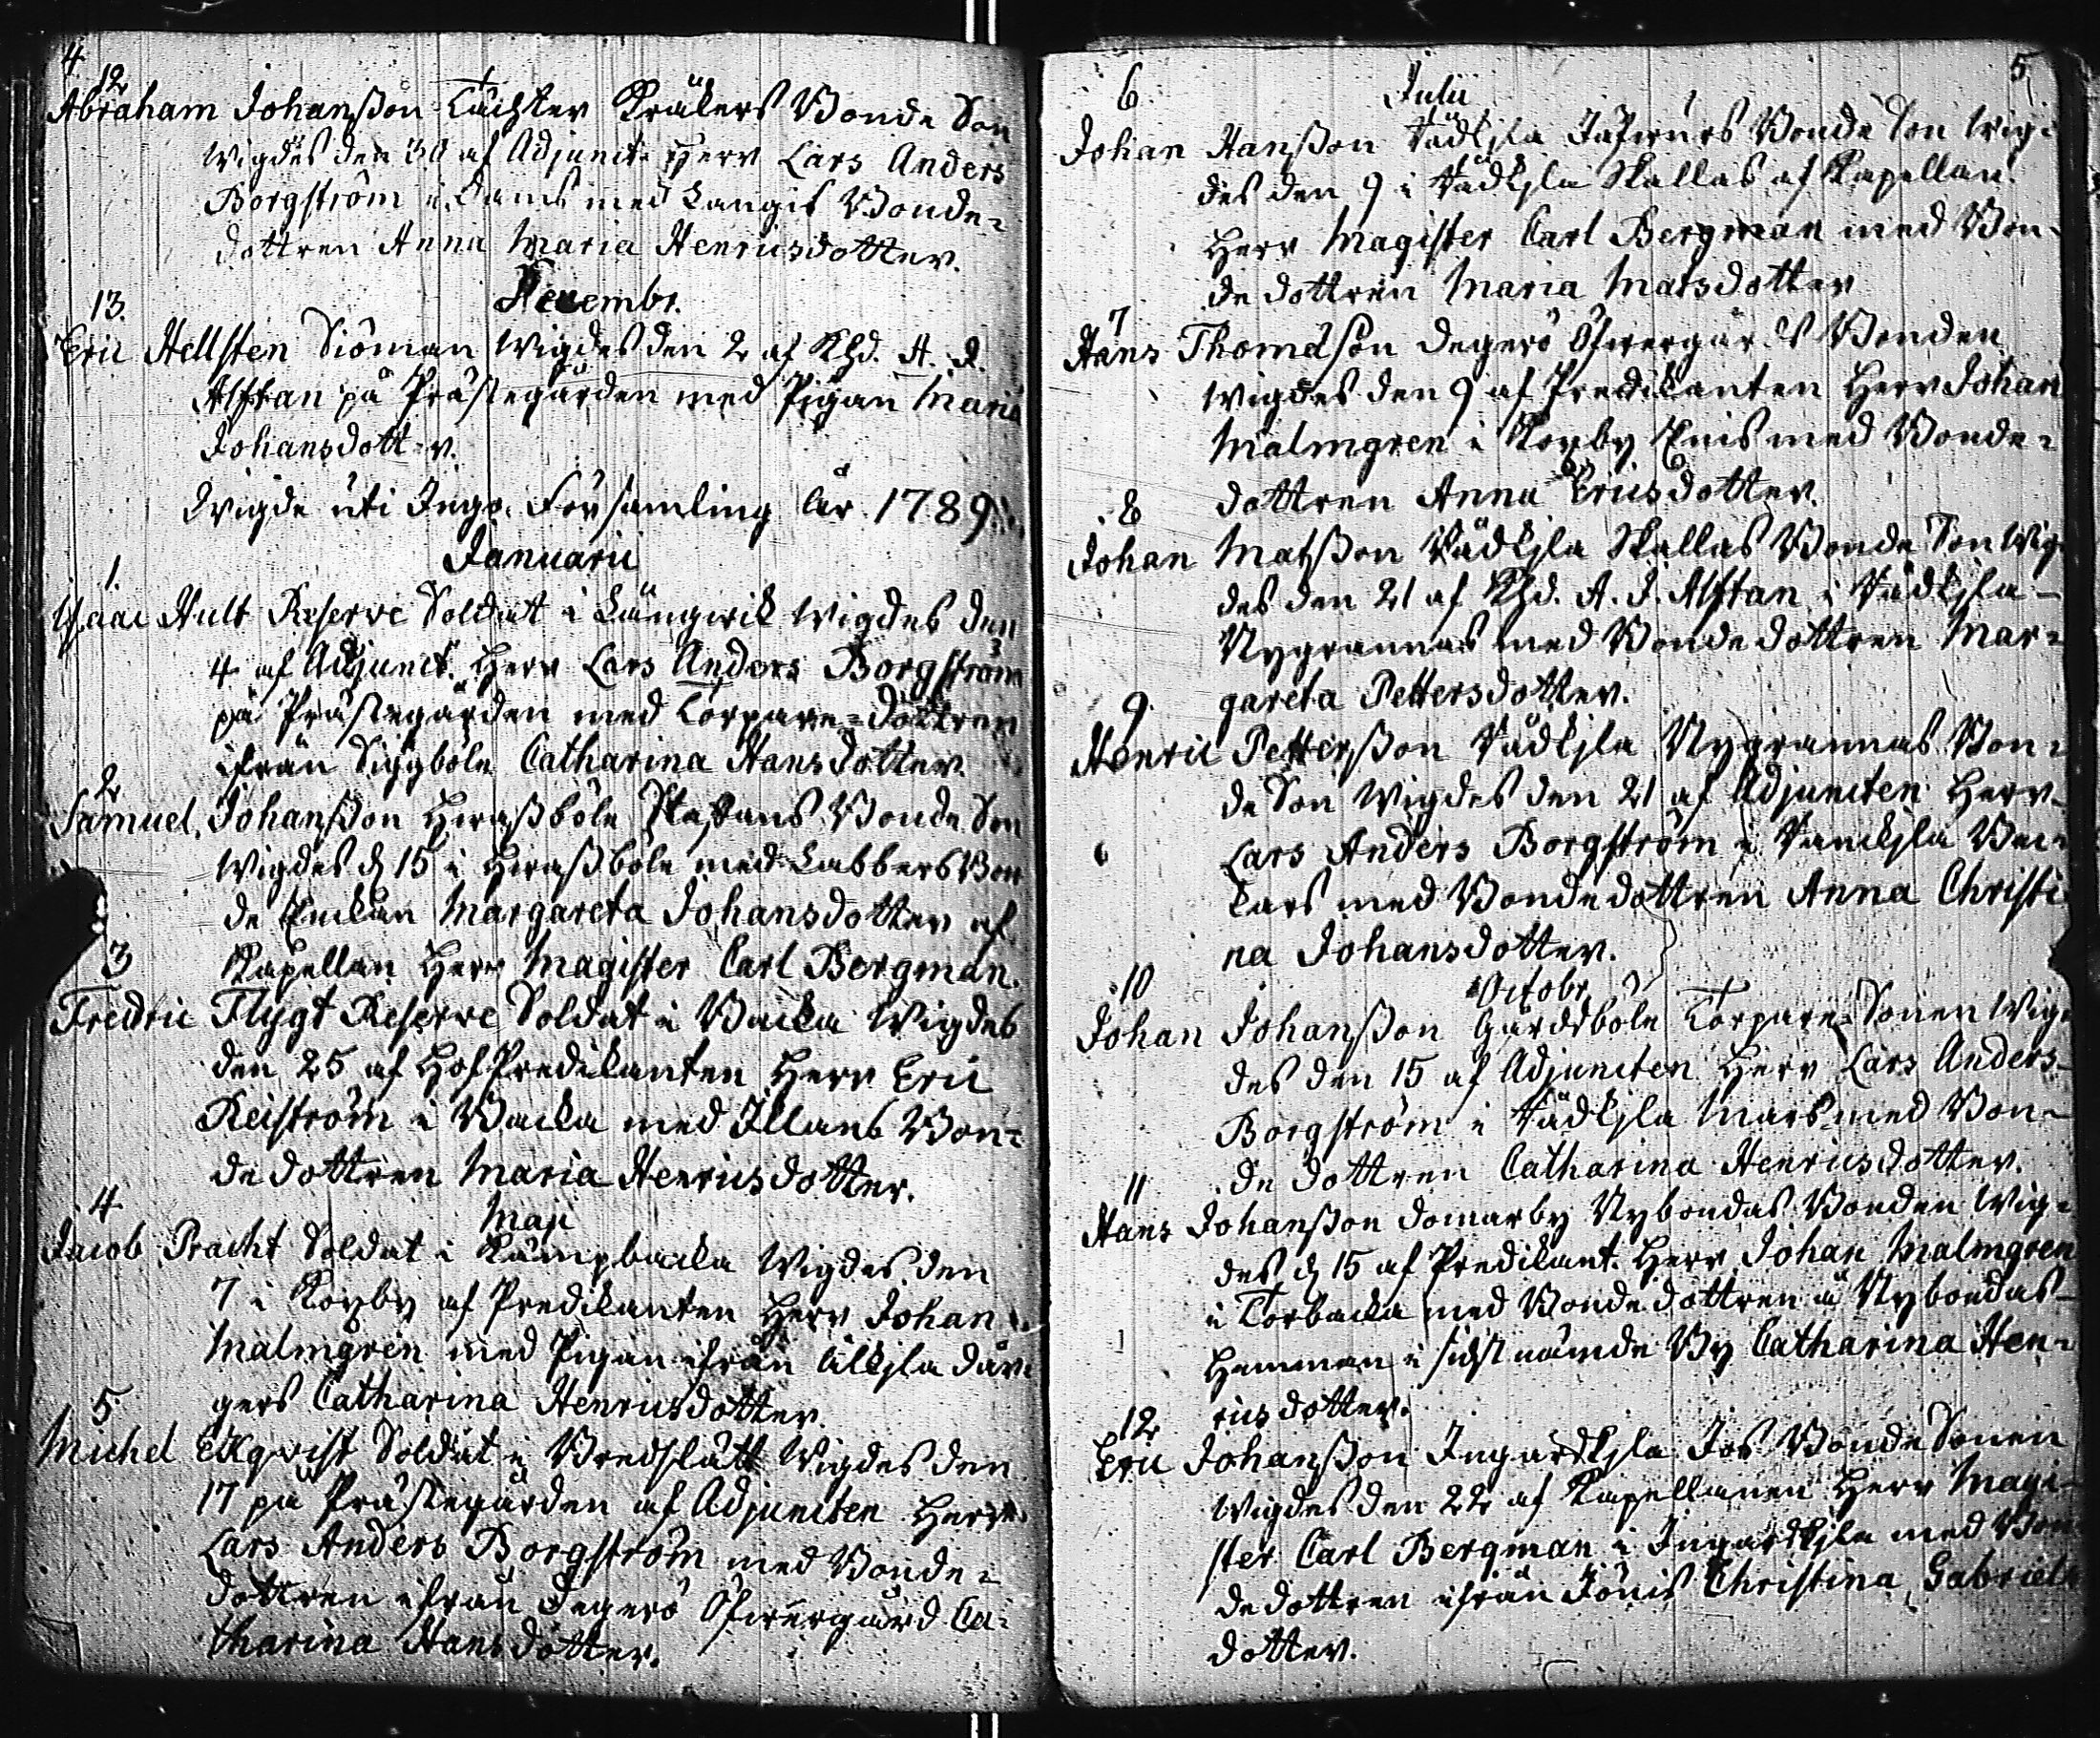 4
12
Abraham Johanßon Täckter Kräkers Bonde Son
Wigdes den 30 af Adjunct. Herr Lars Anders
Borgström i med Langis Bonde-
dottren Anna Maria Henricsdotter.
Decembr.
13.
Eric Hellsten Siöman Wigdes den 2 af Khd. A. J.
Alftan på Prästegården med Pigan Maria
Johansdotter.
Wigde uti Ingo Församling år 1789
Januarii
1.
Isaac Hult Reserve Soldat i Långwik Wigdes den
4 af Adjunct. Herr Lars Anders Borgström
på Prästegården med Torpare-dottren
ifrån Siggböle Catharina Hansdotter.
2
Samuel Johanßon Staffans Bonde Son
Wigdes d. 15 i med Labbers Bon
de Enckan Margareta Johansdotter af
Kapellan Herr Magister Carl Bergman.
3
Fredric Flygt Reserve Soldat i Backa Wigdes
den 25 af HofPredikanten Herr Eric
Reiström i Backa med Illans Bon-
de dottren Maria Henricsdotter.
4
Maji
Jacob Pracht Soldat i Kämpbacka Wigdes den
7 i Kopby af Predikanten Herr Johan
Malmgren med Pigan ifrån Älkjla Där-
gers Catharina Henricsdotter.
5
Michel Ekqvist Soldat i Bredslätt Wigdes den
17 på Prästegården af Adjuncten Herr
Lars Anders Borgström med Bonde-
dottren ifrån Degerö Öfwergård Ca-
tharina Hansdotter.
5
6
Julii
Johan Hanßon Wädkjla Bonde Son Wig-
des den 9 i Wädkjla Skallas af Kapellan
Herr Magister Carl Bergman med Bon-
de dottren Maria Matsdotter
7
Hans Thomaßon Degerö Öfwergårds Bonden
Wigdes den 9 af Predikanten Herr Johan
Malmgren i Kopby Enis med Bonde-
dottren Anna Ericsdotter.
8
Johan Matsßon Wädkjla Skallas Bonde Son Wig-
des den 21 af Khd. A. J. Alftan i Wädkjla
Nygrannas med Bonde dottren Mar-
gareta Pettersdotter.
9.
Henric Petterßon Wädkjla Nygrannas Bon-
de Son Wigdes den 21 af Adjuncten Herr
Lars Anders Borgström i
med Bonde dottren Anna Christi
na Johansdotter.
10
Octobr.
Johan Johanßon Gårdsböle Torpare Sonen Wig-
des den 15 af Adjuncten Herr Lars Anders
Borgström i Wädkjla Mars med Bon-
de dottren Catharina Henricsdotter.
11
Hans Johanßon Domarby Nybondas Bonden Wig-
des d. 15 af Predikant. Herr Johan Malmgren
i Torbacka med Bonde dottren å Nybondas
Hemman i sidst nämde By Catharina Hen-
ricsdotter.
12
Eric Johanßon Ingardskjla Jos Bonde Sonen
Wigdes den 22 af Kapellanen Herr Magi-
ster Carl Bergman i Ingardskjla med Bon
de dottren ifrån Jönis Christina Gabriels
dotter.